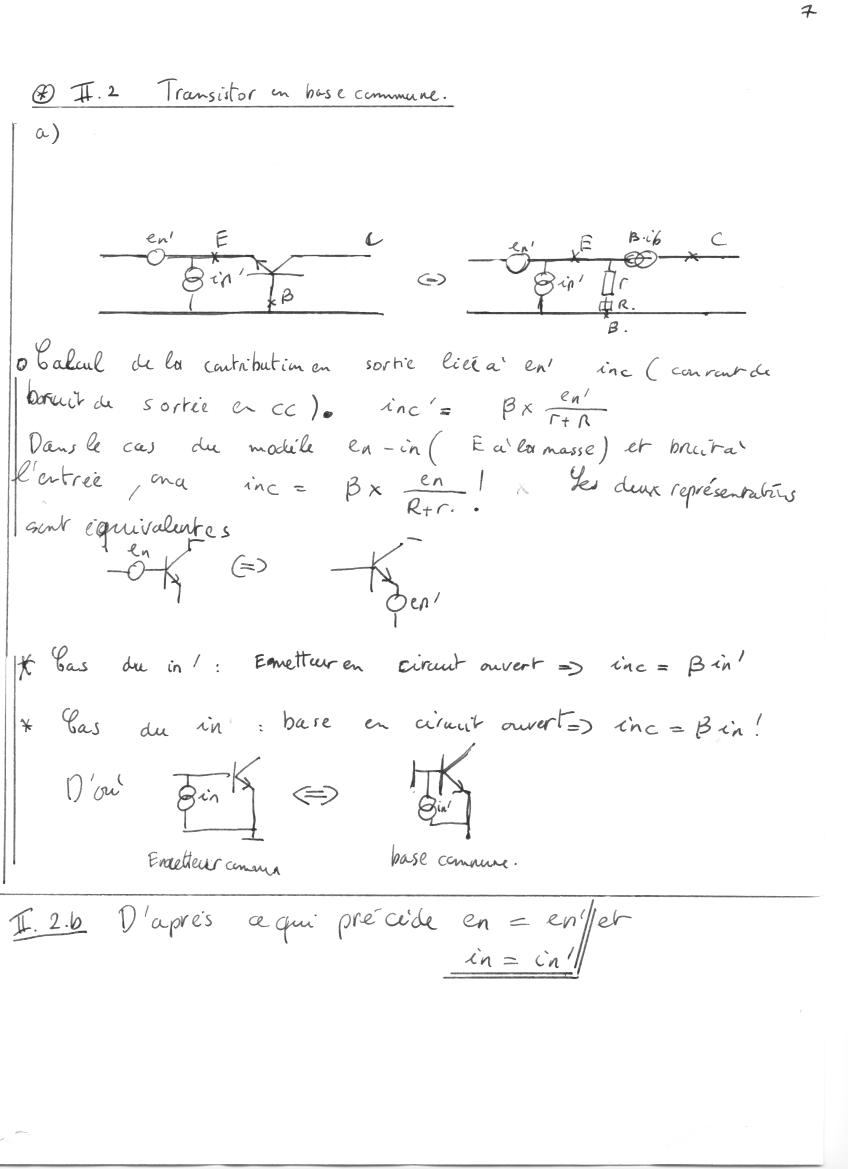 7
⊛ II.2 Transistor en base commune.
a)
en' E C in' B
<=> en' E β.ib C in' r R. B.
o Calcul de la contribution en sortie liée à en' inc (courant de
bruit de sortie en CC). inc' = β × en'/(r+R)
Dans le cas du modèle en-in (E à la masse) et bruit à
l'entrée, on a inc = β × en/(R+r) ! Les deux représentations
sont équivalentes
en <=> en'
* Cas du in' : Emetteur en circuit ouvert => inc = β in'
* Cas du in : base en circuit ouvert => inc = β in !
D'où in <=> in'
Emetteur commun base commune.
II. 2.b D'après ce qui précède en = en' et
in = in'